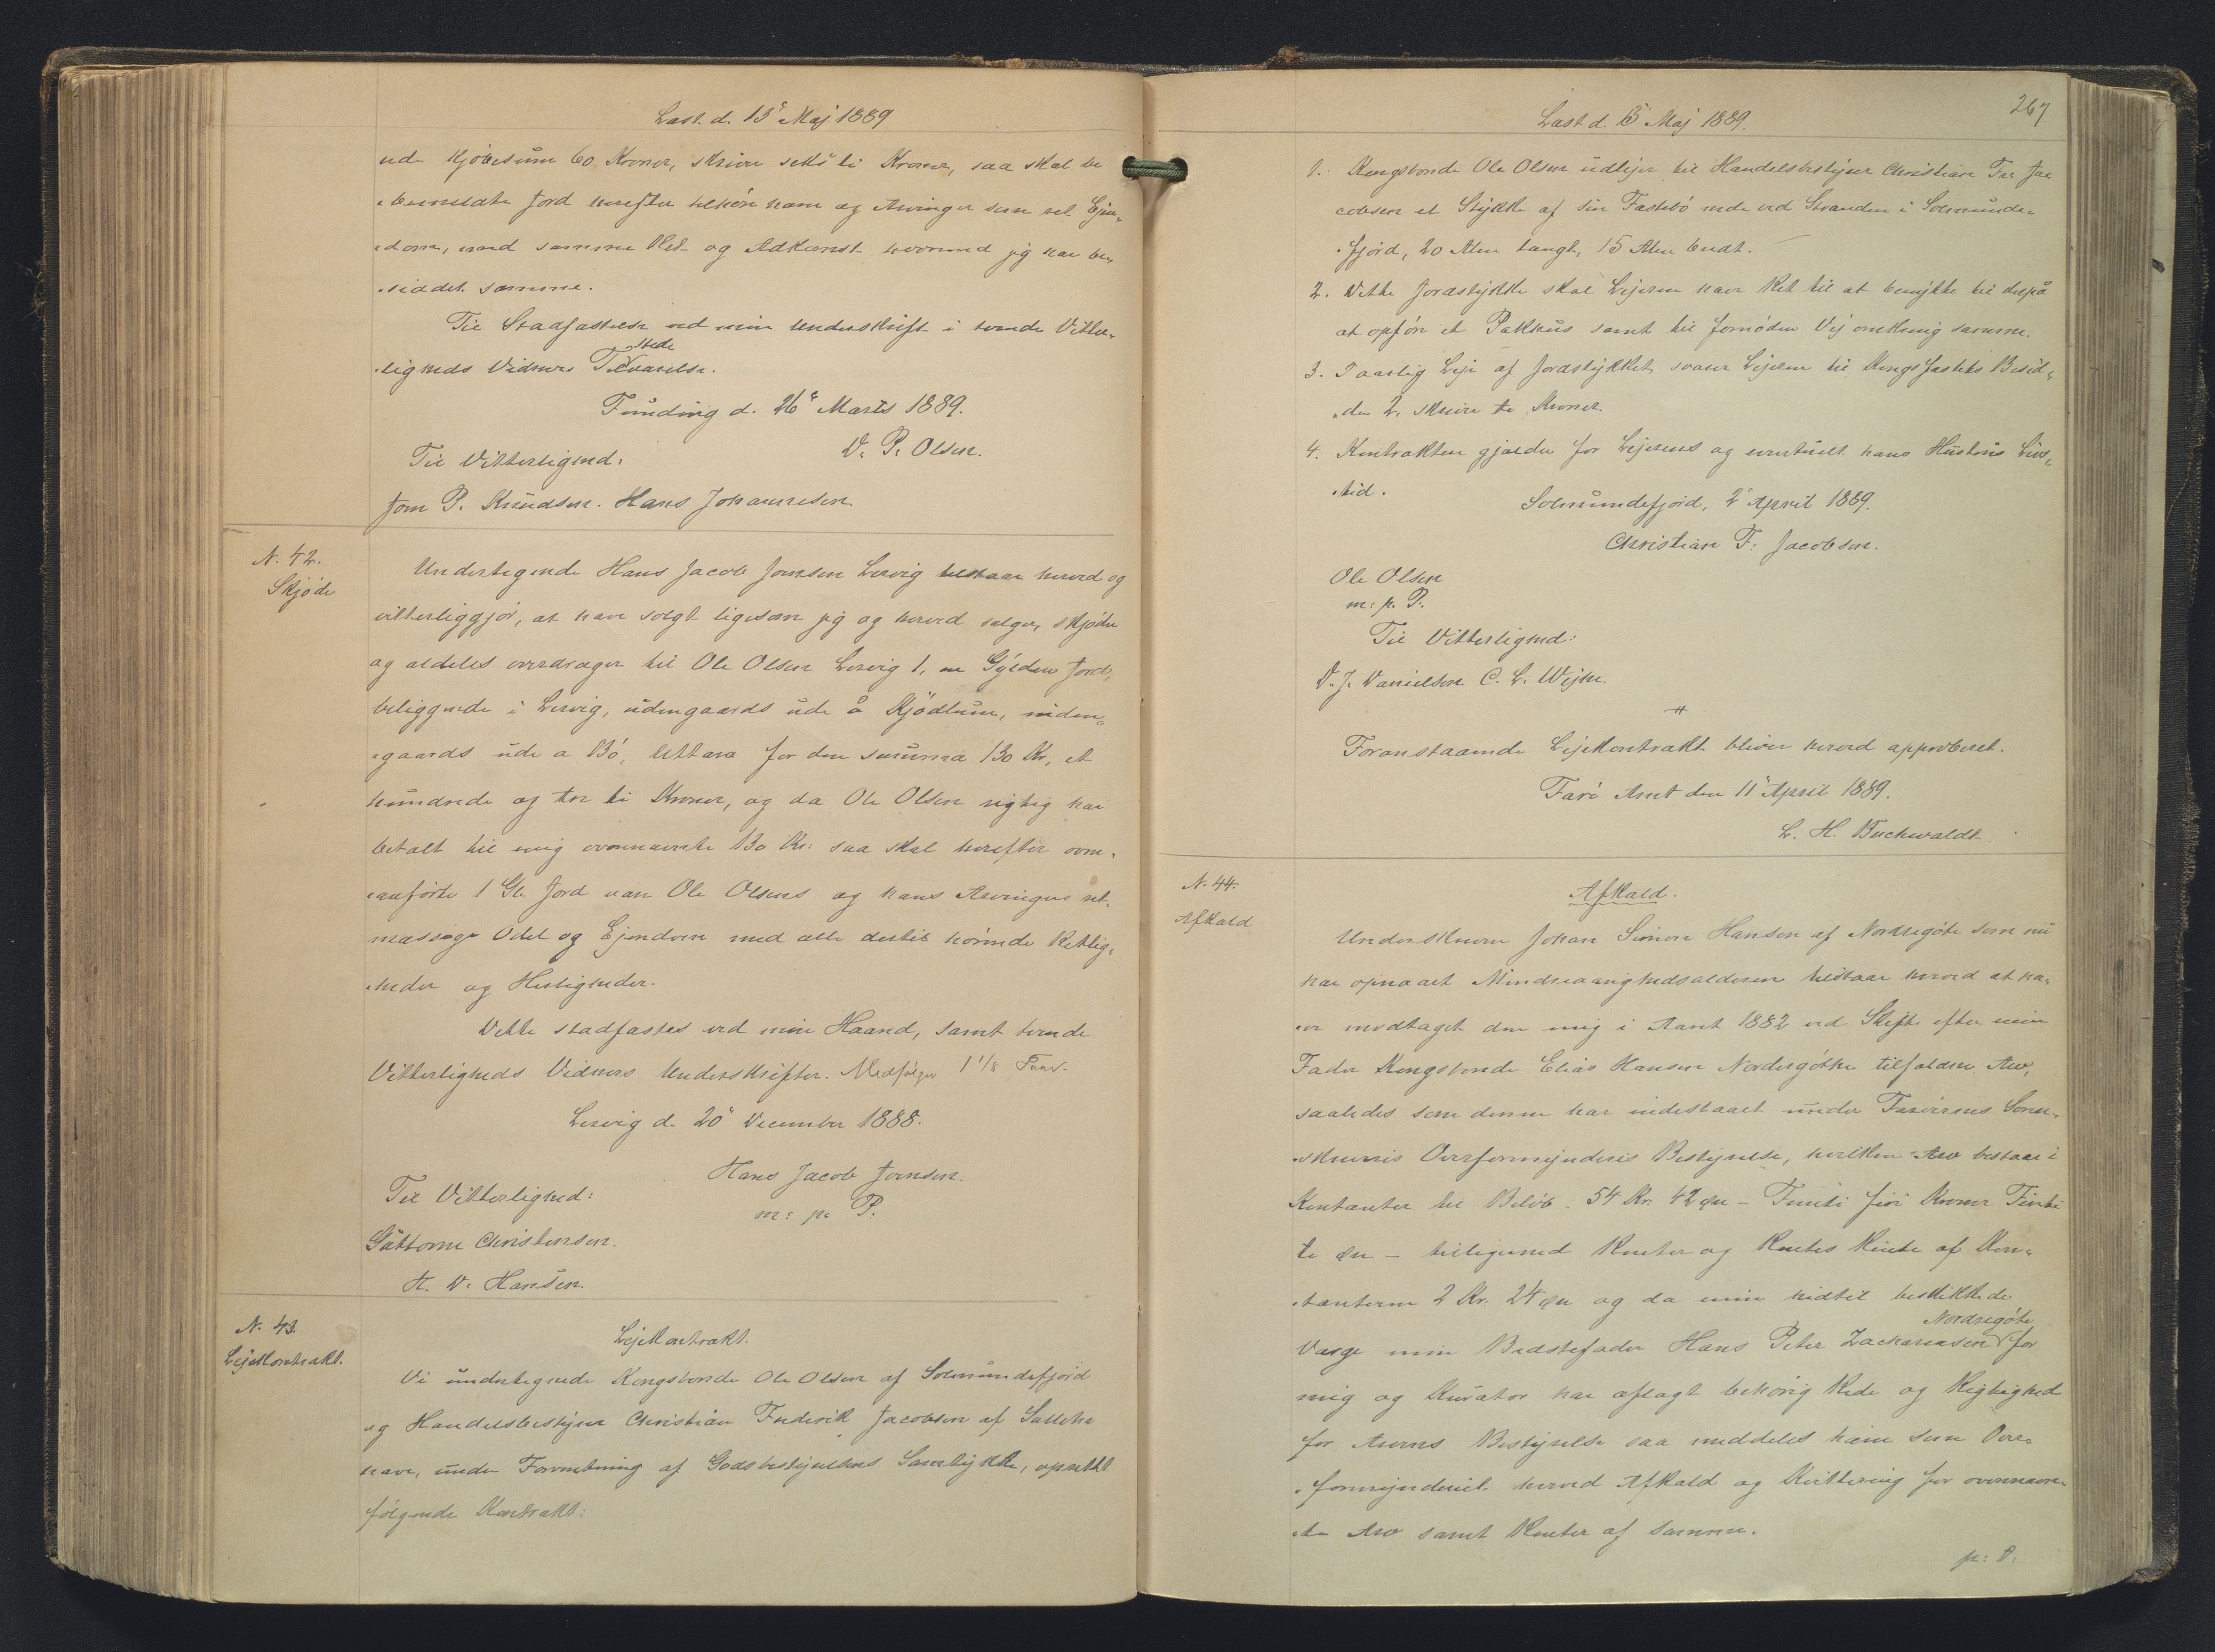 Læst d. 13' Maj 1889
ude Kjöbesum 60 Kroner, skriver seksti Kroner, saa skal be
nævnte Jord herefter tilhöre ham og Arvinger som ret Ejen-
dom, med samme Ret og Adkomst hvormed jeg har be-
siddet samme.
Til Stadfæstelse ved min Underskrift i tvende Vitter-
stede
ligheds Vidners Tilværelse.
Funding d. 26' Marts 1889.
D. P. Olsen.
Til Vitterlighed:
Joen P. Knudsen. Hans Johannesen.
N. 42.
Skjöde
Undertegnede Hans Jacob Joensen Lervig tilstaar herved og
vitterliggjör, at have solgt ligesom jeg og herved sælger, skjöder
og aldeles overdrager til Ole Olsen Lervig 1, en Gylden Jord,
beliggende i Lervig, udengaards ude å Kjödlum, inden-
gaards ude a Bö, for den summa 130 Kr, et
hundrede og tre ti Kroner, og da Ole Olsen rigtig har
betalt til mig ovennævnte 130 Kr: saa skal herefter oven-
anförte 1 Gl. Jord være Ole Olsens og hans Arvingers ret-
mæssige Odel og Ejendom med alle dertil hörende Rettig-
heder og Herligheder.
Dette stadfæstes ved min Haand, samt tvende
Vitterligheds Vidners Underskrifter. Medfölger 1 1/8
Lervig d. 20' December 1888.
Hans Jacob Joensen.
m: p. P.
Til Vitterlighed:
Guttorm Christensen.
H. D. Hansen.
N. 43.
Lejekontrakt.
Lejekontrakt.
Vi undertegnede Kongsbonde Ole Olsen af Solmundefjord
og Handelsbestyrer Christian Frederik Jacobsen af Saltne
have, under Forventning af Godsbestyrelsens Samtykke, oprettet
fölgende Kontrakt:
267.
Læst d. 13' Maj 1889.
1. Kongsbonde Ole Olsen udlejer til Handelsbestyrer Christian Fre Ja
cobsen et Stykke af sin Fæstebö nede ved Stranden i Solmunde-
fjord, 20 Alen langt, 15 Alen bredt.
2. Dette Jordstykke skal Lejeren have Ret til at benytte til derpå
at opföre et Pakhus samt til fornöden Vej omkring samme.
3. I aarlig Leje af Jordstykket svarer Lejeren til Kongsfæstets Besid-
der 2, skriver to Kroner.
4. Kontrakten gjælder for Lejerens og eventuelt hans Hustrus Livs-
tid.
Solmundefjord, 2' April 1889.
Christian F. Jacobsen.
Ole Olsen
m: p. P.
Til Vitterlighed:
D. J. Danielsen. C. L. Wejhe.
Foranstaaende Lejekontrakt bliver herved approberet.
Farö Amt den 11' April 1889.
L. H. Buchwaldt
N. 44.
Afkald
Afkald.
Underskreven Johan Simon Hansen af Nordregöte som nu
har opnaaet Mindreaarighedsalderen tilstaar herved at ha-
ve modtaget den mig i Aaret 1882 ved Skifte efter min
Fader Kongsbonde Elias Hansen Nordregöthe tilfaldne Arv,
saaledes som denne har indestaaet under Færöernes Soren-
skriveris Overformynderis Bestyrelse, hvilken Arv bestaar i
Kontanter til Belöb 54 Kr. 42 Öre - Femti fire Kroner Firti
to Öre - tilligemed Renter og Rentes Rente af Kon-
tanterne 2 Kr. 24 Öre og da min hidtil beskikkede
Nordregöte
Værge min Bedstefader Hans Peter Zachariasen for
mig og Kurator har aflagt behörig Rede og Rigtighed
for Arvens Bestyrelse saa meddeles ham som Over-
formynderiet herved Afkald og Kvittering for ovennævn-
te Arv samt Renter af samme.